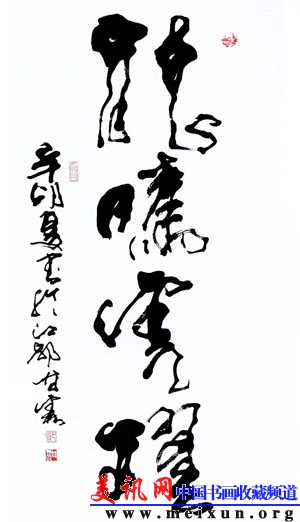 龍嘯虎躍
辛卯夏書於江都甘
美讯网
中国书画收藏频道
www.meixun.org